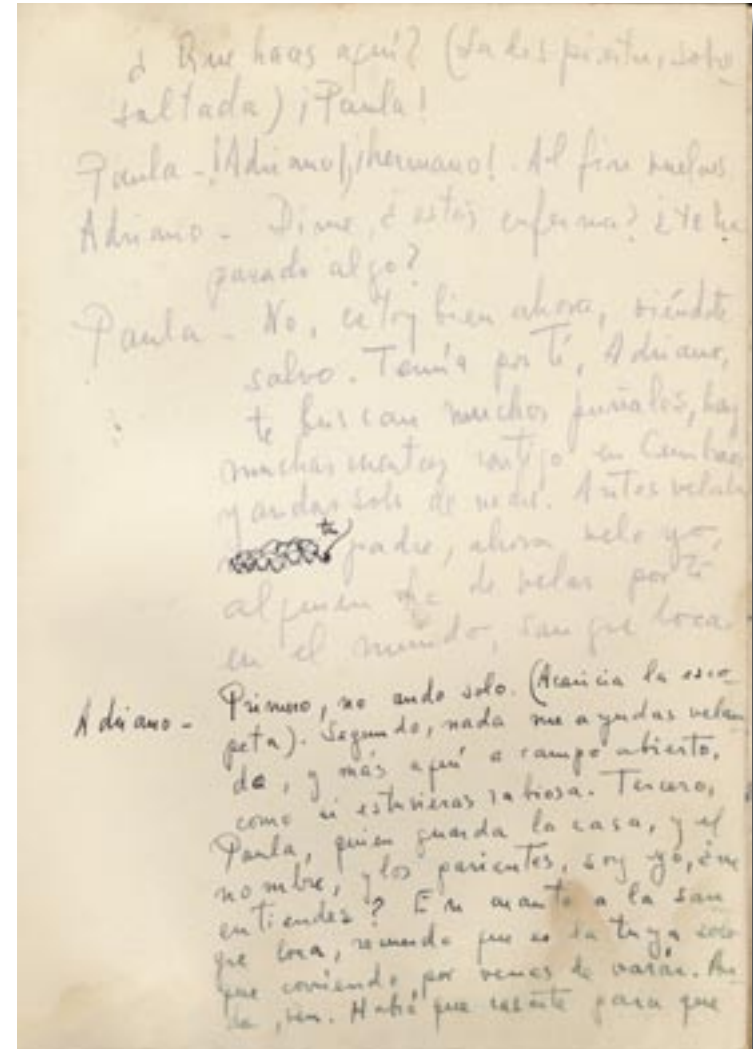 ¿Que haces aquí? (La despierta, sobre
saltada) ¡Paula!
Paula - ¡Adriano!, ¡hermano!. Al fin vuelves
Adriano - Dime, ¿estás enferma? ¿Te ha
pasado algo?
Paula - No, estoy bien ahora, viéndote
salvo. Temía por ti, Adriano,
te buscan muchos puñales, hay
muchas contigo en
y andas solo de noche. Antes velaba
tu padre, ahora velo yo,
alguien ha de velar por ti
en el mundo, sangre loca.
Adriano - Primero, no ando solo. (Acaricia la esco
peta). Segundo, nada me ayudas velan
do, y más aquí a campo abierto,
como si estuvieras rabiosa. Tercero,
Paula, quien guarda la casa, y el
nombre, y los parientes, soy yo, ¿me
entiendes? En cuanto a la san
gre loca, recuerda que es la tuya solo
que corriendo por venas de varón. An
da, ven. Habrá que casarte para que